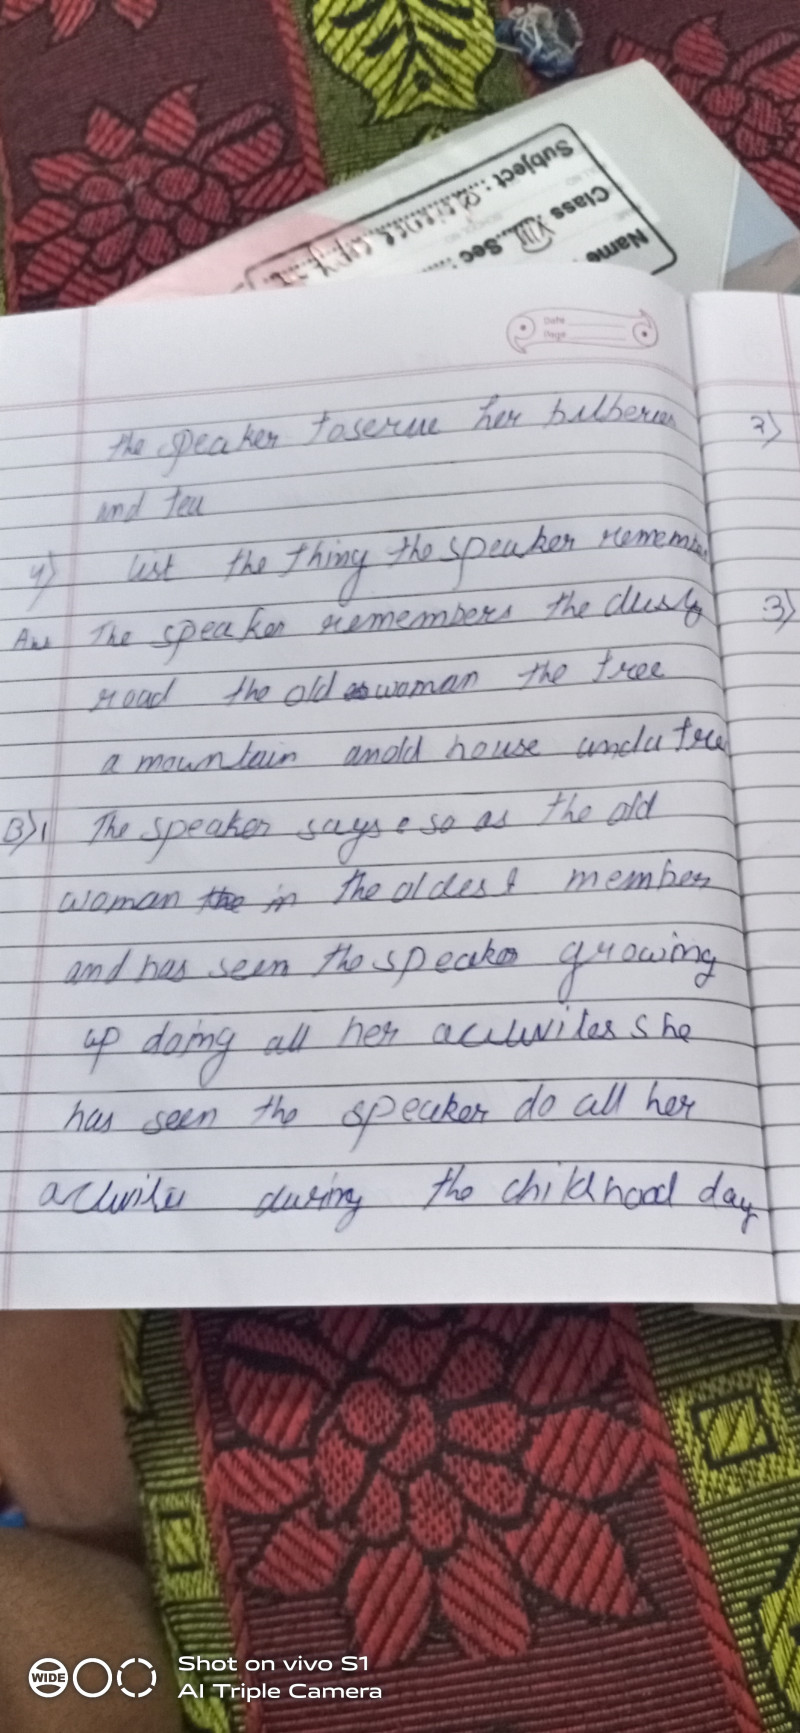 Subject :
Class VIII Sec :
Name
Date
Page
the speaker toserve her bilberies
and tea
4) list the thing the speaker remember
Ans The speaker remembers the dusty
road the old woman the tree
a mountain anold house unda tree
B) 1 The speaker says so as the old
woman in the oldest member
and has seen the speaker growing
up doing all her activites she
has seen the speaker do all her
activites during the childhood day
2)
3)
WIDE
Shot on vivo S1
AI Triple Camera